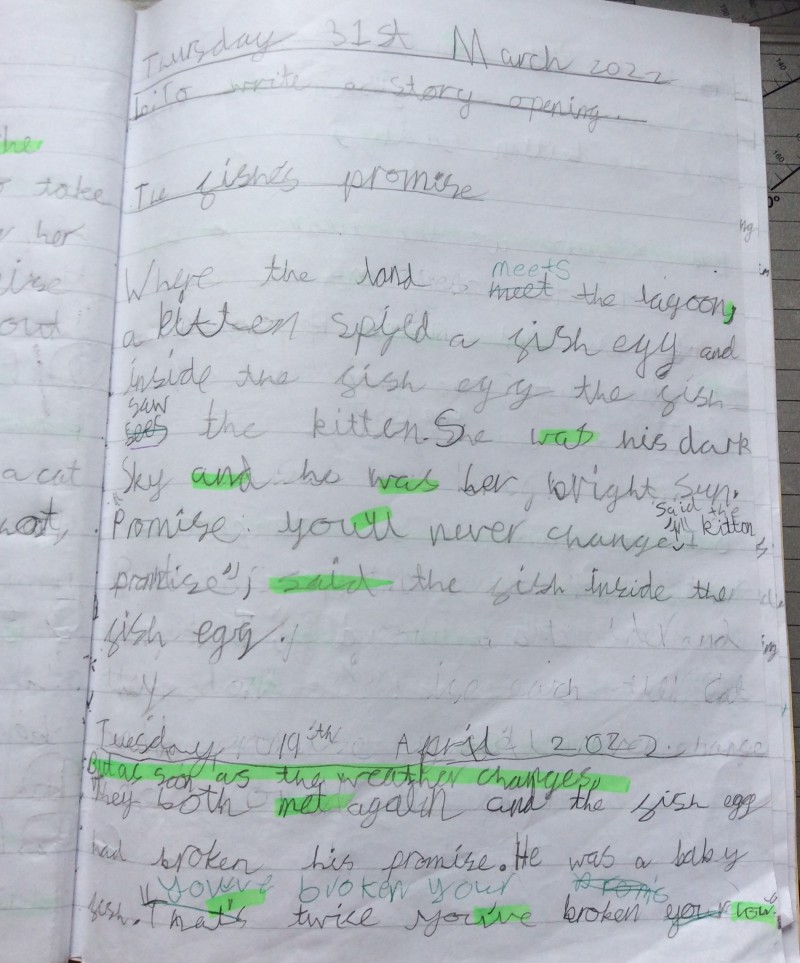 Tuesday 31st March 2022
L.i To write a story opening...
The fishes promise
he
take
her
out
a cat
Where the land meets meet the lagoon,
a kitten spied a fish egg and
inside the fish egg the fish
saw sees the kitten. She was his dark
Sky and he was her bright sun.
Promise you'll never change said the kitten I
promise", said the fish inside the
fish egg.
Tuesday 19th April 2022
But as soon as the weather changes,
They both met again and the fish egg
had broken his promise. He was a baby
You've broken your promis
fish. "That's twice you've broken your vow."